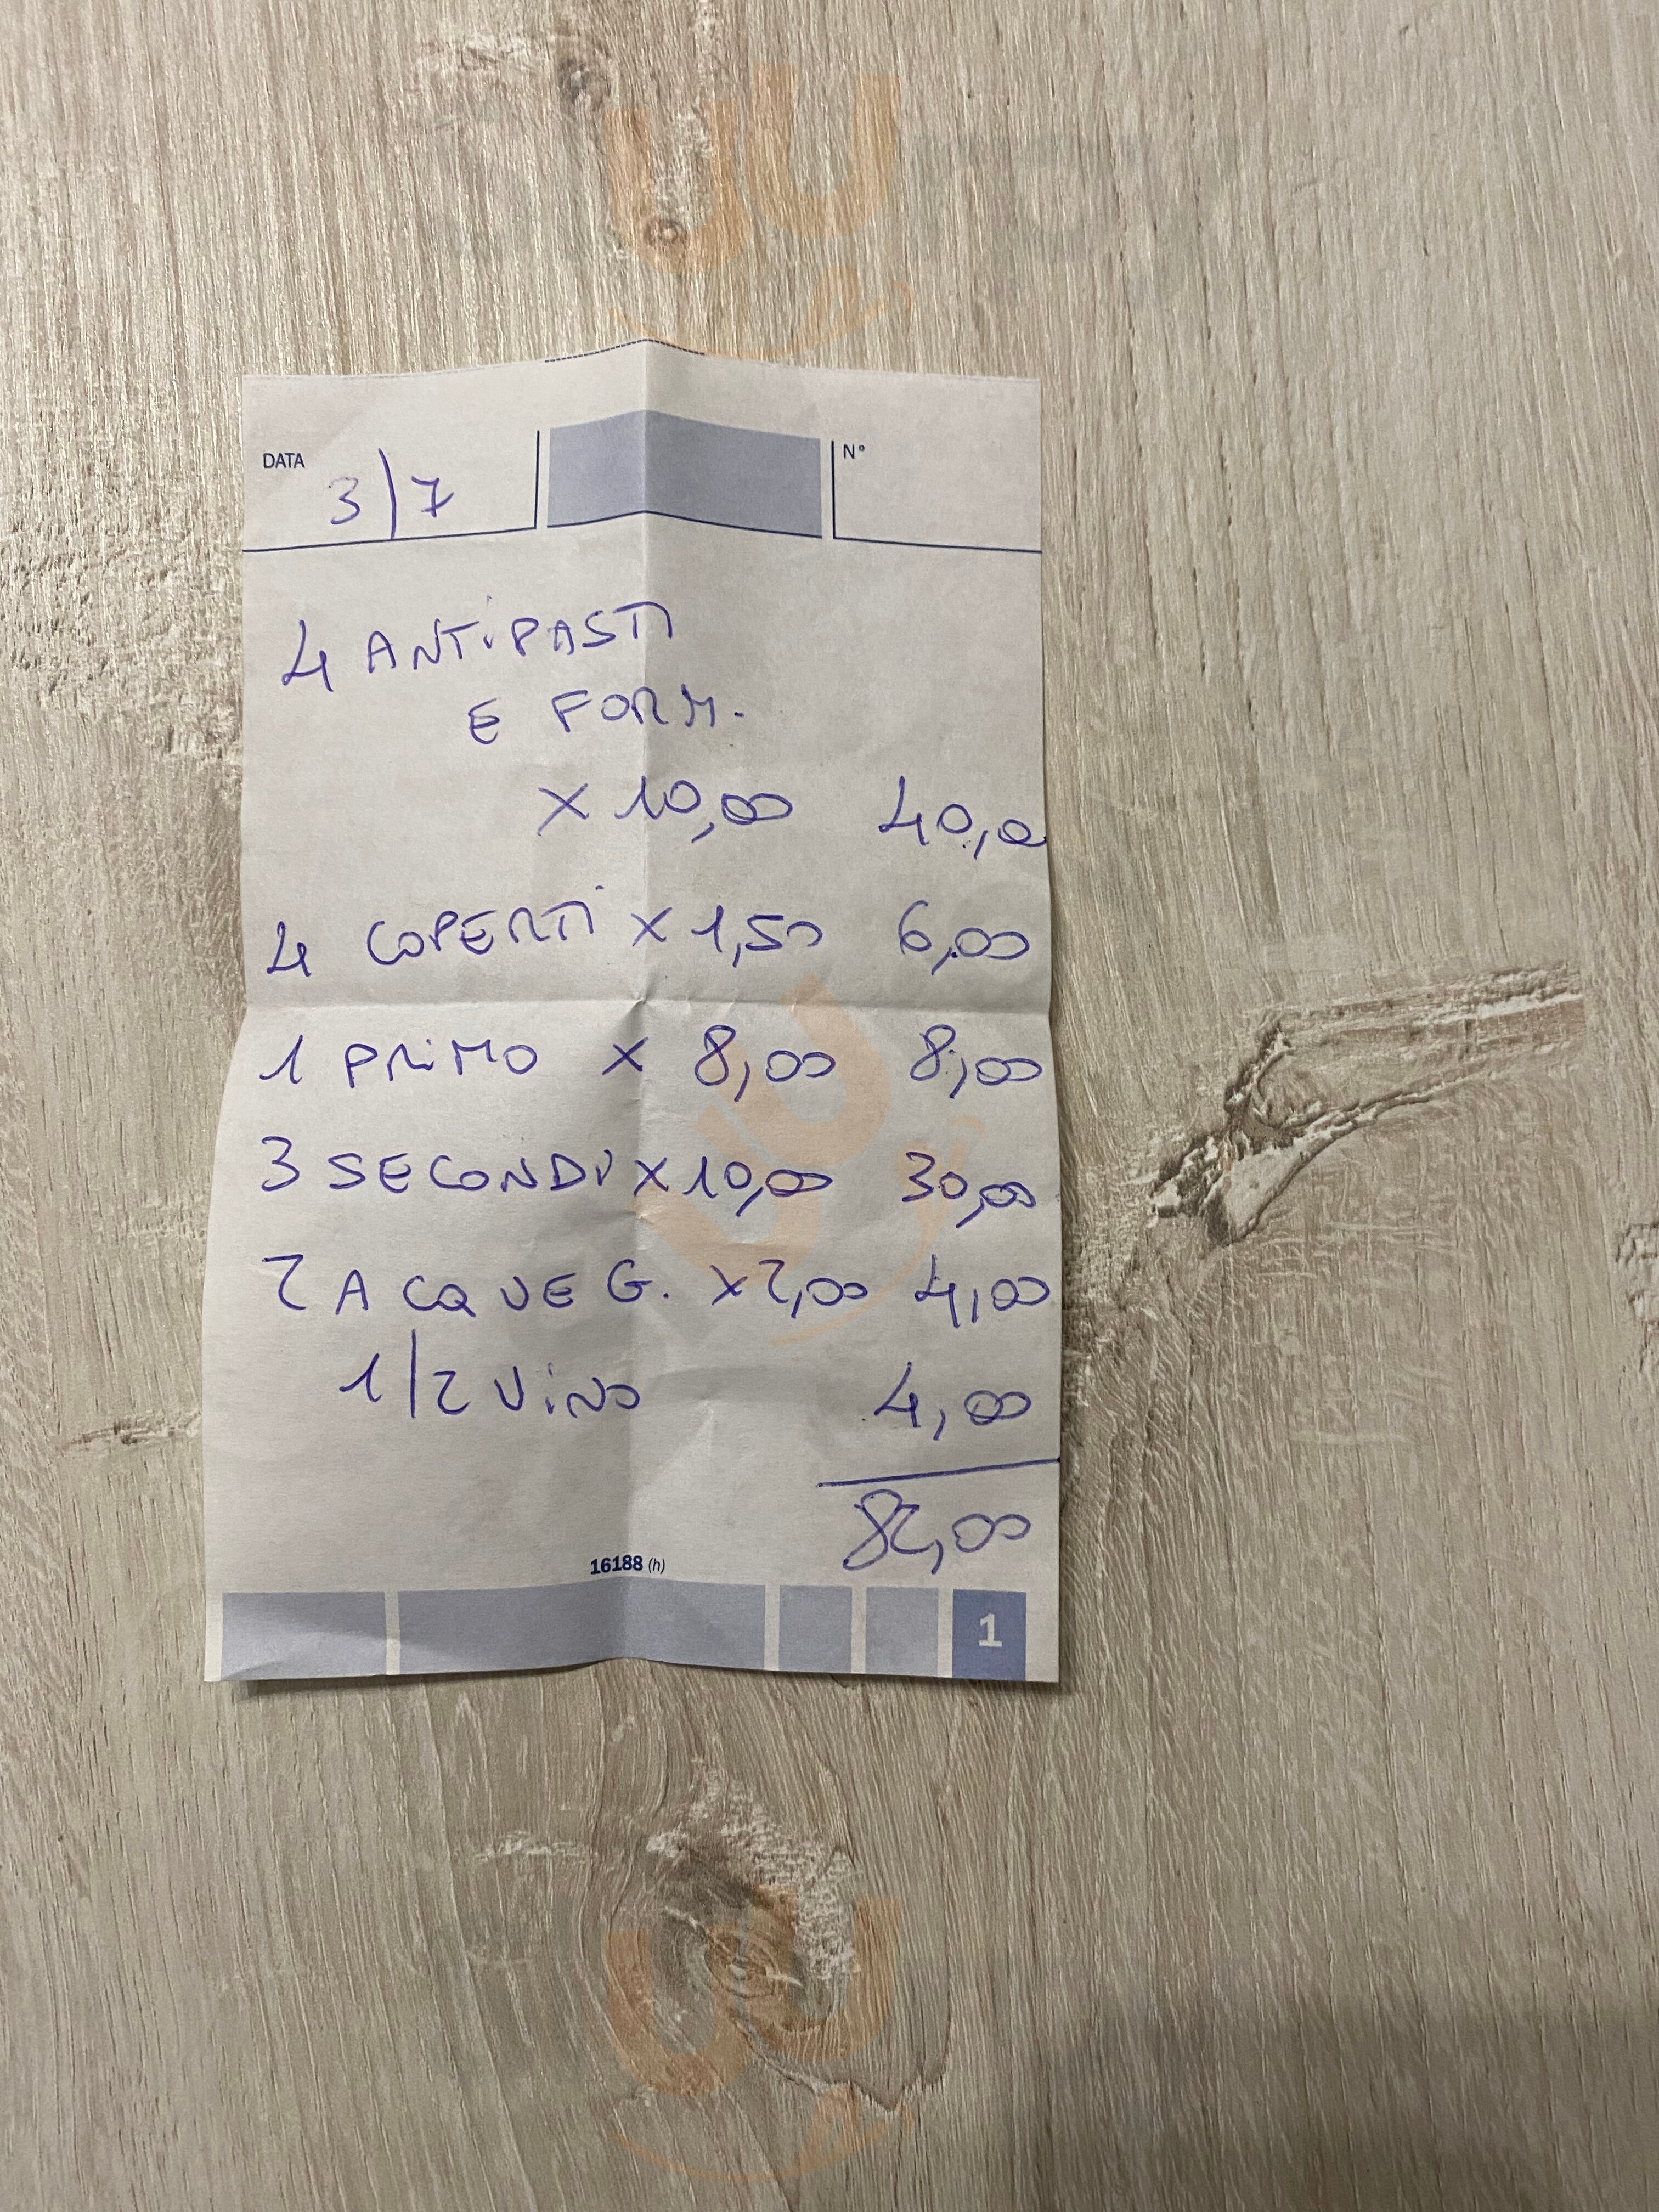 DATA
3/7
N°
4 ANTIPASTI
E FORM.
X 10,00 40,0
4 COPERTI X 1,50 6,00
1 PRIMO X 8,00 8,00
3 SECONDI X 10,00 30,00
2 ACQUE G. X 2,00 4,00
1/2 VINO 4,00
82,00
16188 (h)
1